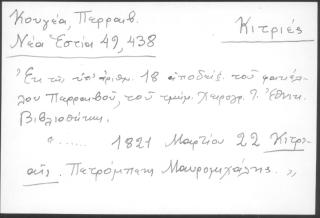 Κουγέα, Περραιβ.
Κιτριές
Νέα Ἑστία 49, 438
Ἐκ τῶν ὑπ' ἀριθμ. 18 ἀποδείξ. τοῦ φακέλ-
λου Περραιβοῦ, τοῦ τμήμ. Χειρογρ. τ. Ἐθνικ.
Βιβλιοθήκης.
" ...... 1821 Μαρτίου 22 Κιτρι-
αῖς. Πετρόμπεης Μαυρομιχάλης. "